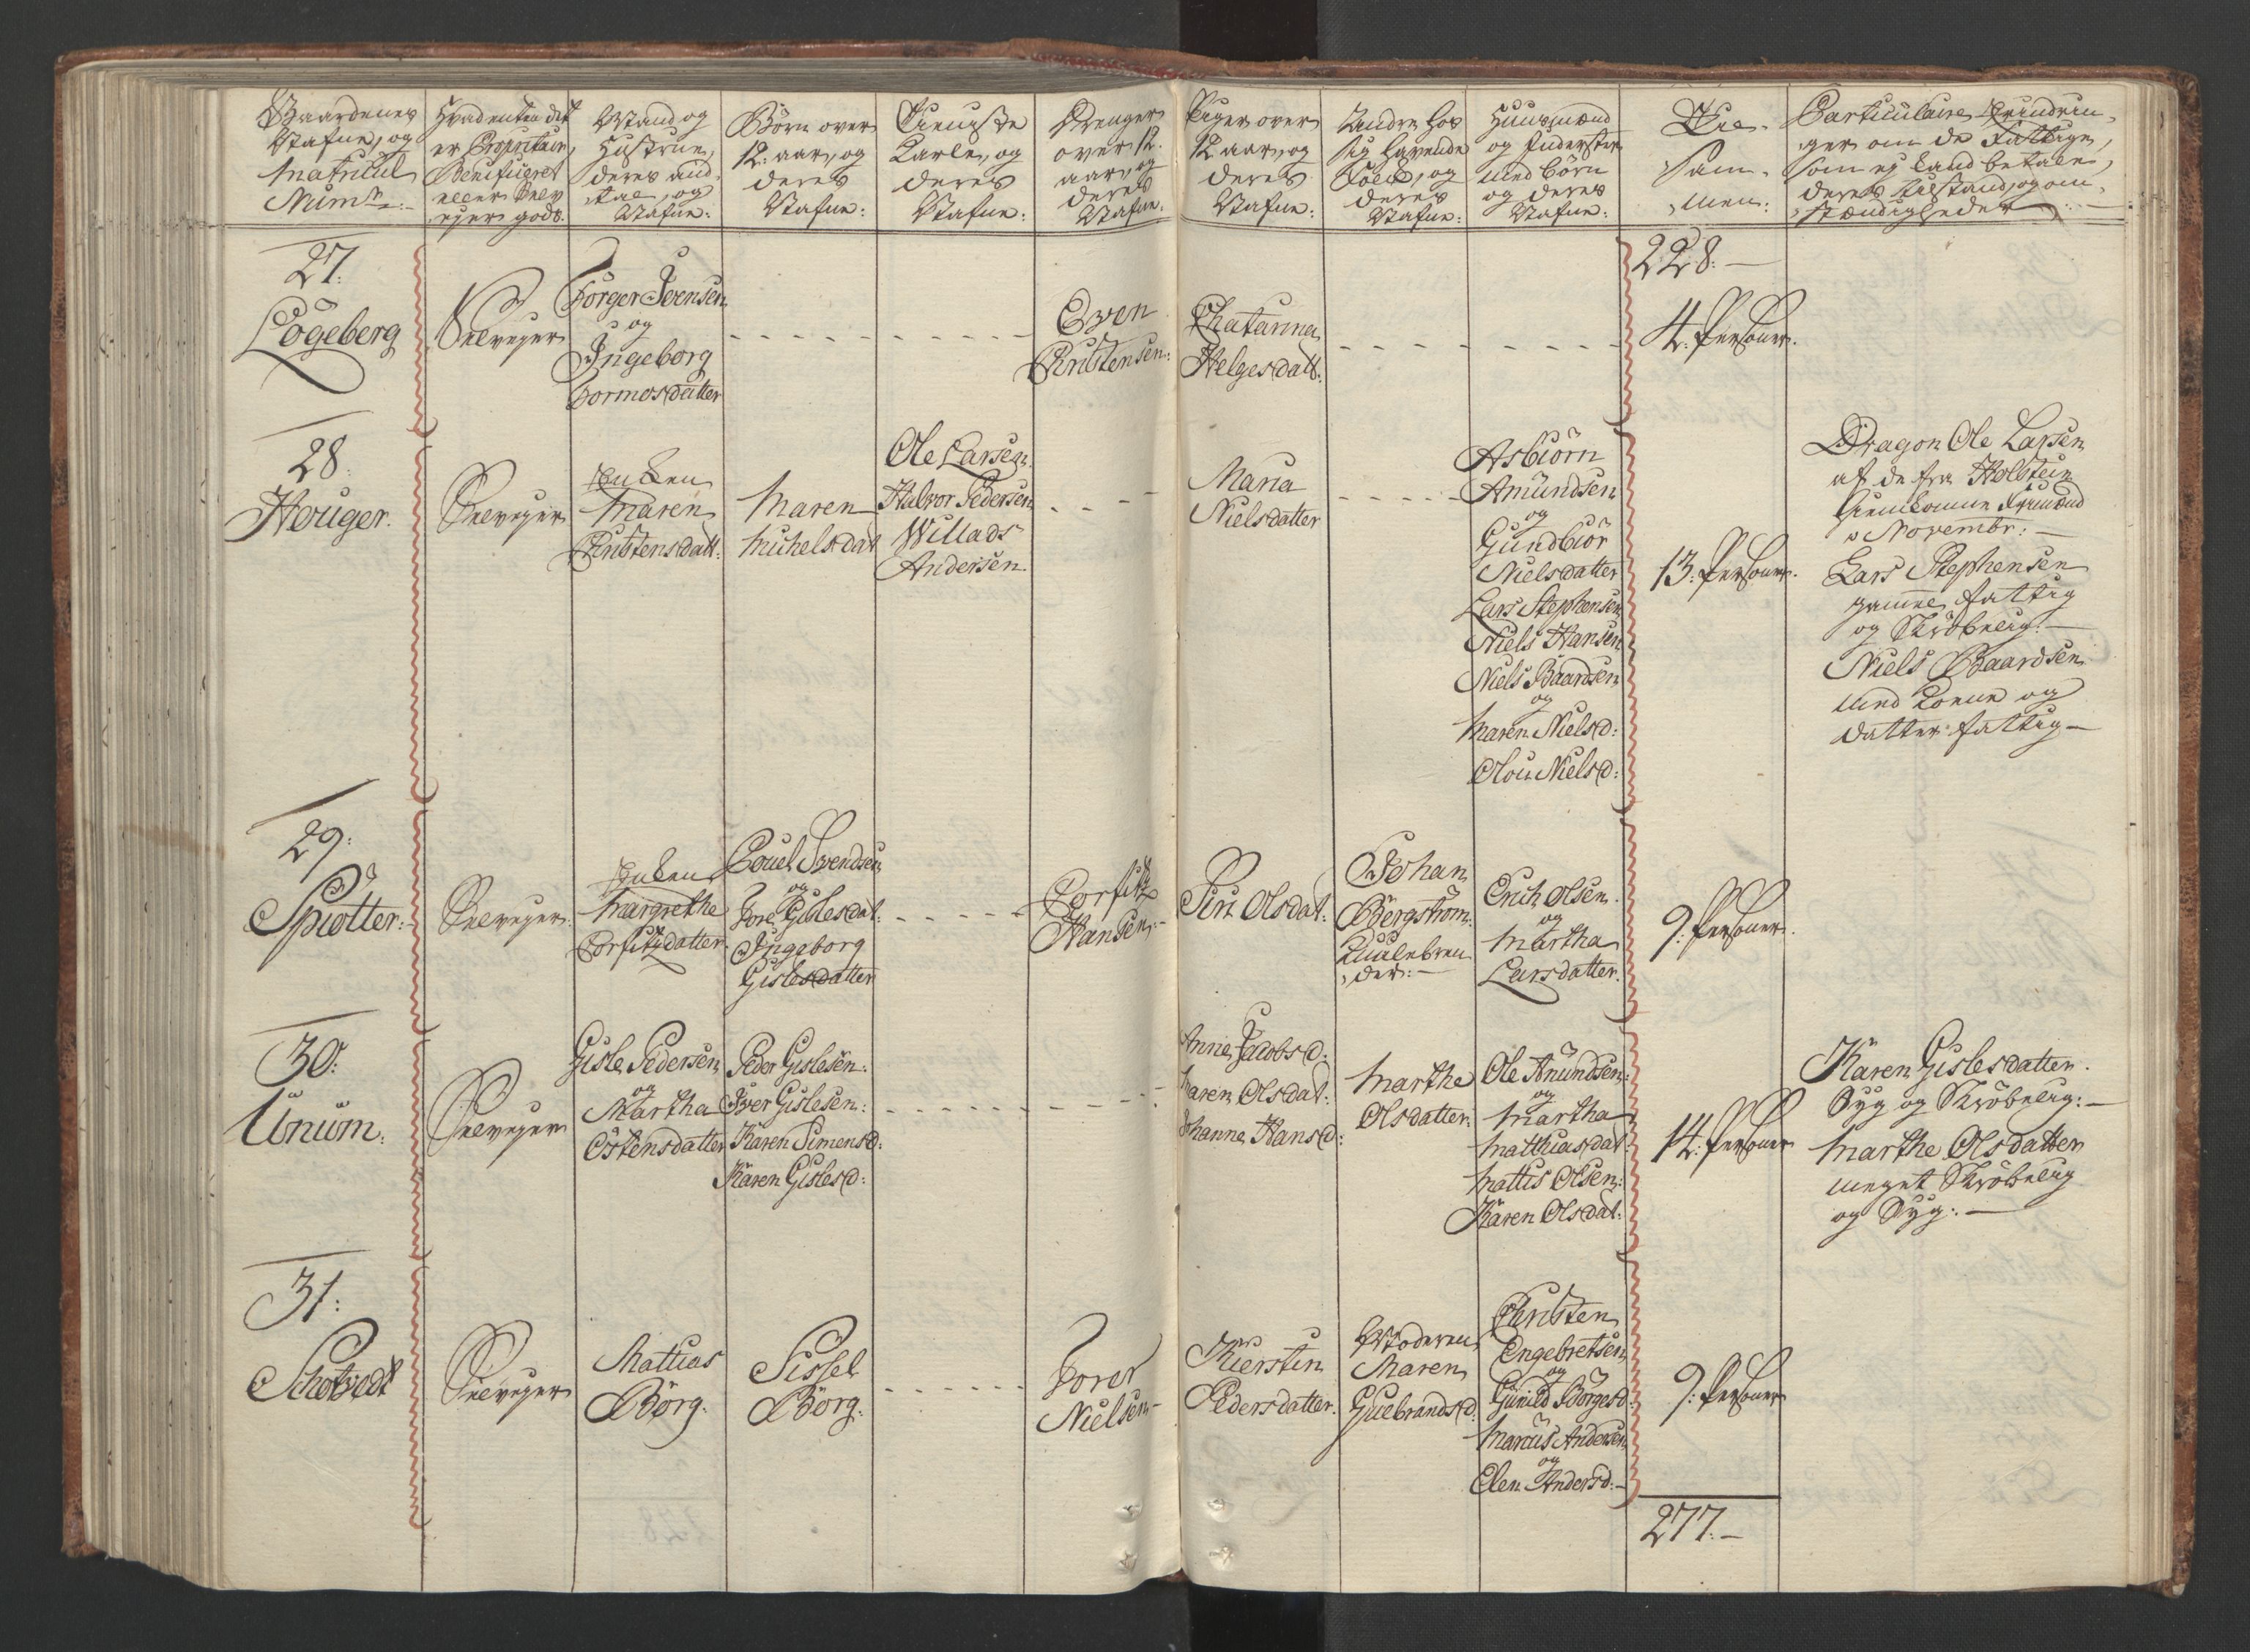 Gaardenes
Nafne, og
Matricul
Num:
Hvad enten det
er Proprietair,
Benificeret
eller Selv
ejer gods.
Mand og
Hustrue,
deres an-
tal, og
Nafne:
Börn over
12: aar, og
deres
Nafne:
Tieniste
Karle, og
deres
Nafne:
Drenger
over 12.
aar, og
deres
Nafne:
Piger over
12 aar, og
deres
Nafne:
Andre hos
sig havende
Folck, og
deres
Nafne:
Huusmænd
og Inderster
med börn
og deres
Nafne:
Til-
sam-
men:
Particulaire Erindrin-
ger om de Fattige,
som ej kand betale,
deres tilstand, og om-
stændigheder
228.
27.
Lögeberg
Selvejer
Börger Ivensen
og
Ingeborg
Tormosdatter
Even
Christensen:
Chatarina
Helgesdatt:
4. Personer.
28.
Houger.
Selvejer
Enken
Maren
Christensdatt:
Maren
Michelsdat
Ole Larsen.
Halvor Pedersen
Willads
Andersen.
Maria
Nielsdatter
Asbiörn
Amundsen
og
Gundbiör
Nielsdatter
Lars Stephensen
Niels Hansen
Niels Baardsen
og
Maren Nielsd:
Olou Nielsd:
13. Personer.
Dragon Ole Larsen
af de fra Holsteen
hiemkomne
Novembr:
Lars Stephensen
gammel fattig
og Skröbelig.
Niels Baardsen
med Kone og
datter fattig
29.
Spiotter.
Selvejer.
Enken
Margrethe
Corfitzdatter
Poüel Svendsen
og
Tore Gislesdat:
Ingeborg
Gislesdatter
Corfitz
Hansen.
Siri Olsdat:
Johan
Bergström.
Kuulebren-
der:
Erich Olsen.
og
Martha
Larsdatter.
9. Personer.
30.
Unum.
Selvejer
Gisle Pedersen
og
Martha
Östensdatter
Peder Gislesen:
Iver Gislesen:
Karen Simensd:
Karen Gislesd:
Anne Jacobsd:
Maren Olsdat:
Johanne Hansd:
Marthe
Olsdatter:
Ole Anundsen:
og
Martha
Matthiasdat.
Mattis Olsen:
Karen Olsdat:
14. Personer
Karen Gislesdatter.
Syg og Skröbelig:
Marthe Olsdatter
meget Skröbelig
og Syg:
31.
Schotvedt
Selvejer
Mattias
Börg.
Sissel
Börg:
Torer
Nielsen
Kierstin
Pedersdatter.
Moderen
Maren
Gulbrandsd:
Christen
Engebretsen
og
Gunild Börgesd:
Marius Andersen
og
Elen Andersd:
9. Personer
277.